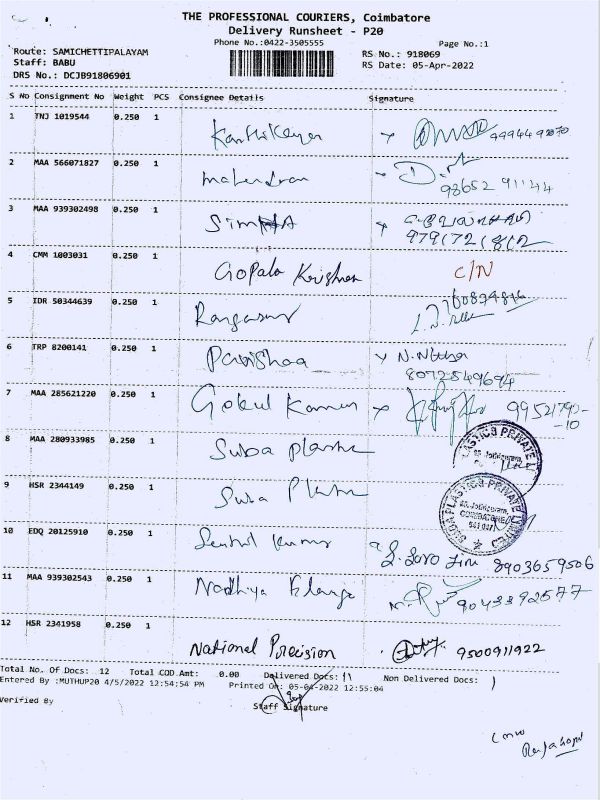 THE PROFESSIONAL COURIERS, Coimbatore
Delivery Runsheet - P20
Phone No.:0422-3505555
Page No.:1
Route: SAMICHETTIPALAYAM
RS No.: 918069
Staff: BABU
RS Date: 05-Apr-2022
DRS No.: DCJB91806901
S No Consignment No Weight PCS Consignee Details Signature
1 TNJ 1019544 0.250 1 Karthikeyan
2 MAA 566071827 0.250 1 mahendran 98652 91144
3 MAA 939302498 0.250 1
4 CMM 1003031 0.250 1 Gopala Krishnan C/N
5 IDR 50344639 0.250 1
6 TRP 8200141 0.250 1 8072549694
7 MAA 285621220 0.250 1 Gokul Kumar
8 MAA 280933985 0.250 1 Suba plastic
9 HSR 2344149 0.250 1 Suba Plastic
SUBA PLASTICS PRIVATE LIMITED
COIMBATORE
10 EDQ 20125910 0.250 1 Senthil Kumar 8903659506
11 MAA 939302543 0.250 1 Nadhiya 9043392577
12 HSR 2341958 0.250 1 National Precision 9500911922
Total No. Of Docs: 12 Total COD Amt: 0.00 Delivered Docs: 11 Non Delivered Docs: 1
Entered By :MUTHUP20 4/5/2022 12:54:54 PM Printed On: 05-04-2022 12:55:04
Staff Signature
Verified By